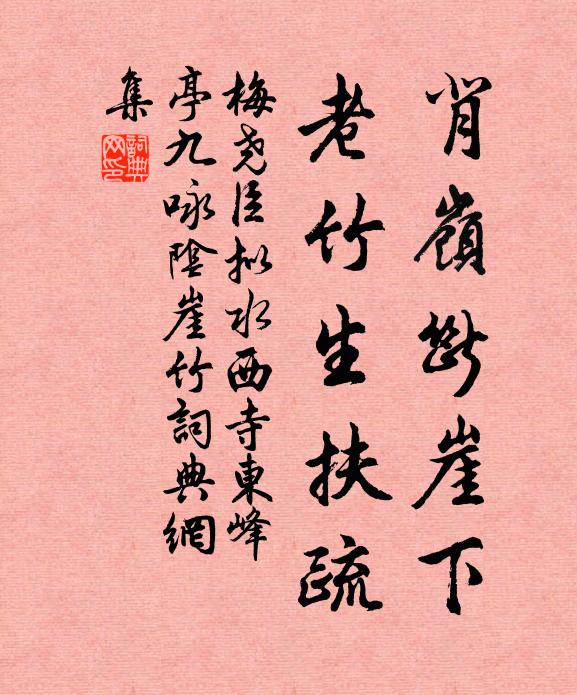 背嶺斷崖下
老竹生扶疏
梅堯臣擬水西寺東峰
亭九咏陰崖竹詞典網
集
詞典網印